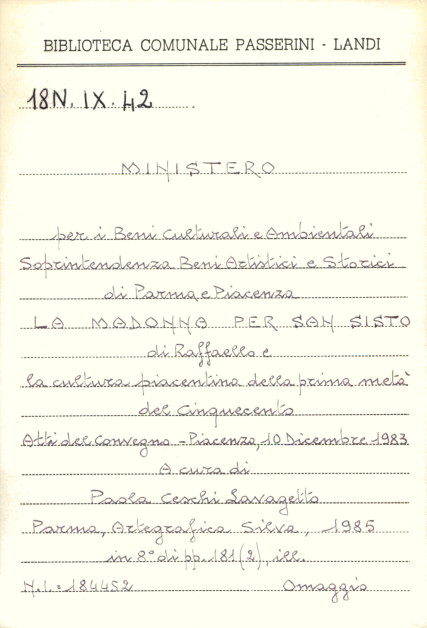 BIBLIOTECA COMUNALE PASSERINI - LANDI
18N. IX. 42
MINISTERO
per i Beni Culturali e Ambientali
Soprintendenza Beni Artistici e Storici
di Parma e Piacenza
LA MADONNA PER SAN SISTO
di Raffaello e
la cultura piacentina della prima metà
del Cinquecento
Atti del Convegno - Piacenza, 10 Dicembre 1983
A cura di
Paola Ceschi Lavagetto
Parma, Artegrafica Silva, 1985
in 8° di pp. 181 (2), ill.
N.I. = 184452 Omaggio